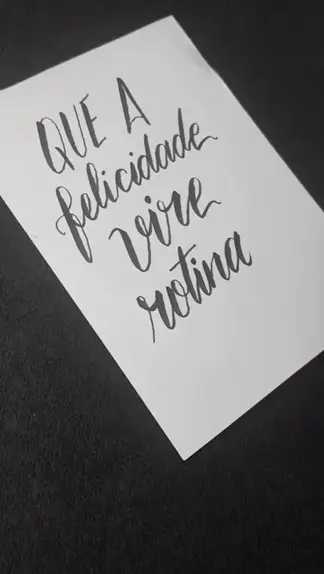 QUE A
felicidade
vire
rotina